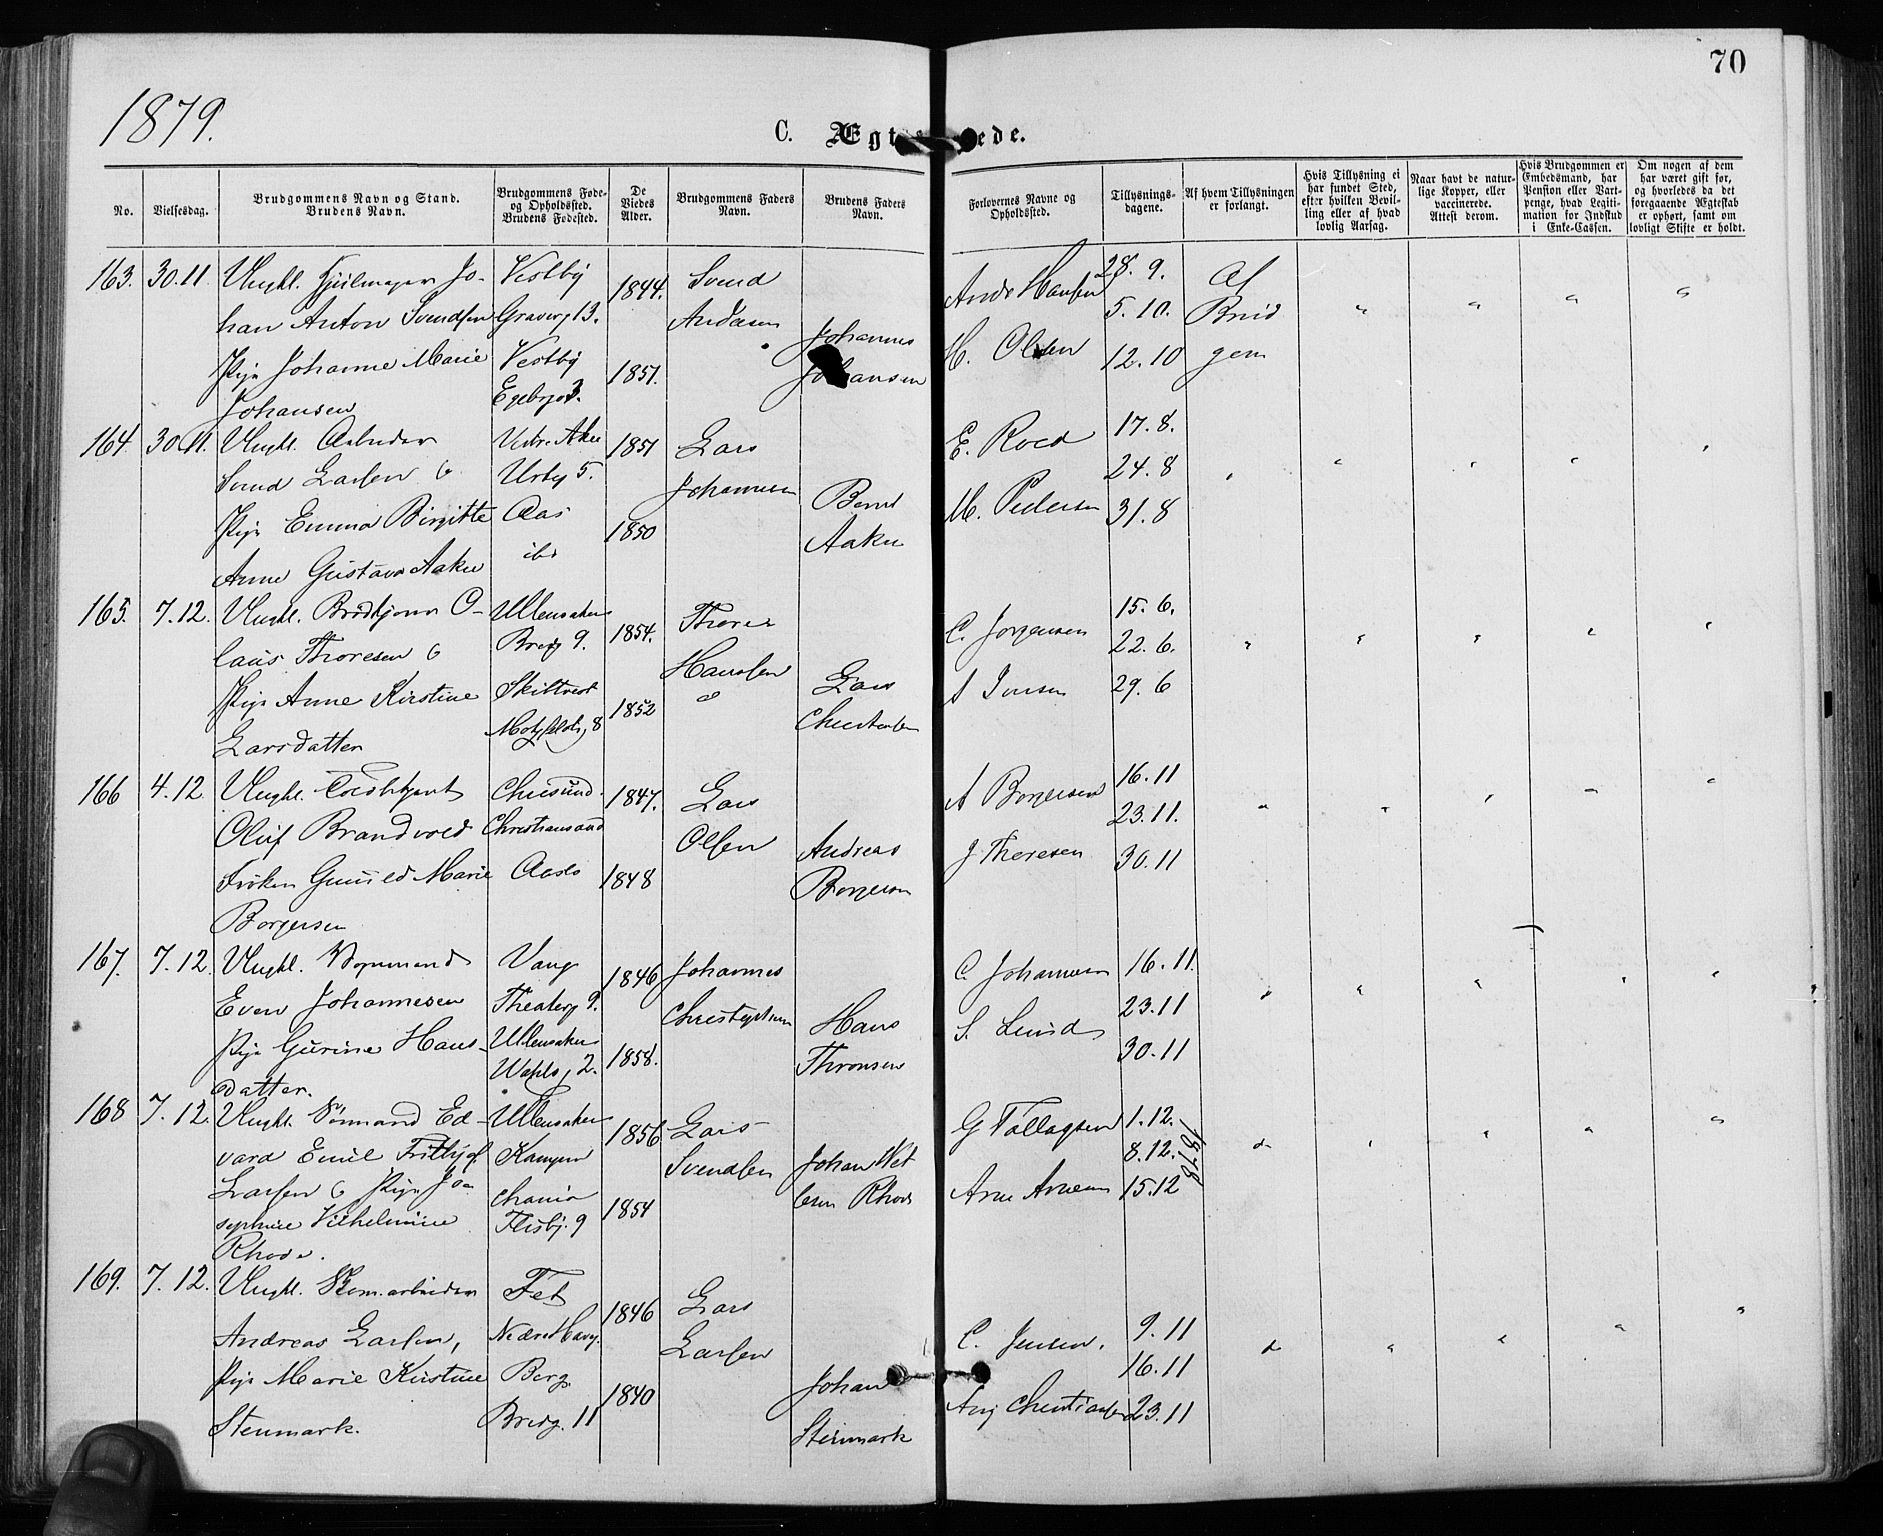 70
1879.
C. Ægt ede.
No.
Vielsesdag.
Brudgommens Navn og Stand.
Brudens Navn.
Brudgommens Føde-
og Opholdssted.
Brudens Fødested.
De
Viedes
Alder.
Brudgommens Faders
Navn.
Brudens Faders
Navn.
Forlovernes Navne og
Opholdssted.
Tillysnings-
dagene.
Af hvem Tillysningen
er forlangt.
Hvis Tillysning ei
har fundet Sted,
efter hvilken Bevil-
ling eller af hvad
lovlig Aarsag.
Naar havt de natur-
lige Kopper, eller
vaccinerede.
Attest derom.
Hvis Brudgommen er
Embedsmand, har
Pension eller Vart-
penge, hvad Legiti-
mation for Indskud
i Enke-Cassen.
Om nogen af dem
har været gift før,
og hvorledes da det
foregaaende Ægteskab
er ophørt, samt om
lovligt Skifte er holdt.
163. 30.11. Ungkl. Jo-
han Anton Svendsen
Pige Johanne Marie
Johansen
Vestby
Graverg 13.
Vestby
1844.
1851.
Svend
Andersen
Johannes
Johansen
Andr Hansen
H. Olsen
28. 9.
5. 10.
12. 10
Af
Brud
gom
164. 30.11. Ungkl. Arbeider
Svend Larsen &
Pige Emma Birgitte
Anne Gustava Aaker
V. Aker
Urteg 5.
Aas
ibd
1851
1850
Lars
Johannesen
Bernt
Aaker
E. Roed
M. Pedersen
17. 8.
24. 8
31. 8
165. 7.12. Ungkl. O-
laus Thoresen &
Pige Anne Kirstine
Larsdatter
Ullensaker
Bredg 9.
Skiltvedt
1854.
1852
Thore
Hansen
Lars
Christensen
C. Jørgensen
A Jensen
15. 6.
22. 6.
29. 6
166 4.12. Ungkl. Toldbetjent
Oluf Brandvold
Frøken Gunild Marie
Borgersen
Chrsund.
Christiansand
1847.
1848
Lars
Olsen
Andreas
Borgersen
A Borgersen
J Thoresen
16. 11
23. 11.
30. 11
167. 7.12. Ungkl. Vognmand
Even Johannesen
Pige Gurine Hans-
datter.
Vang
Theaterg 9.
Ullensaker
1846
1858.
Johannes
Christophersen
Hans
Thronsen
C. Johannesen
S. Lund
16. 11.
23. 11
30. 11
168 7.12. Ungkl. Sømand Ed-
vard Emil Fridtjof
Larsen & Pige Jo-
sephine Vilhelmine
Rhode.
Ullensaker
Kampen
Chania
1856
1854
Lars
Svendsen
Johan Wil
Rhode
G Tallagsen
Arne Arnesen
1. 12.
8. 12.
15. 12
1878
169. 7.12. Ungkl. arbeider
Andreas Larsen,
Pige Marie Kirstine
Stenmark.
Fet
Nedre
Berg
Bredg. 11
1846
1840
Lars
Larsen
Johan
Stenmark
C. Jensen.
Aug Christiansen
9. 11
16. 11
23. 11